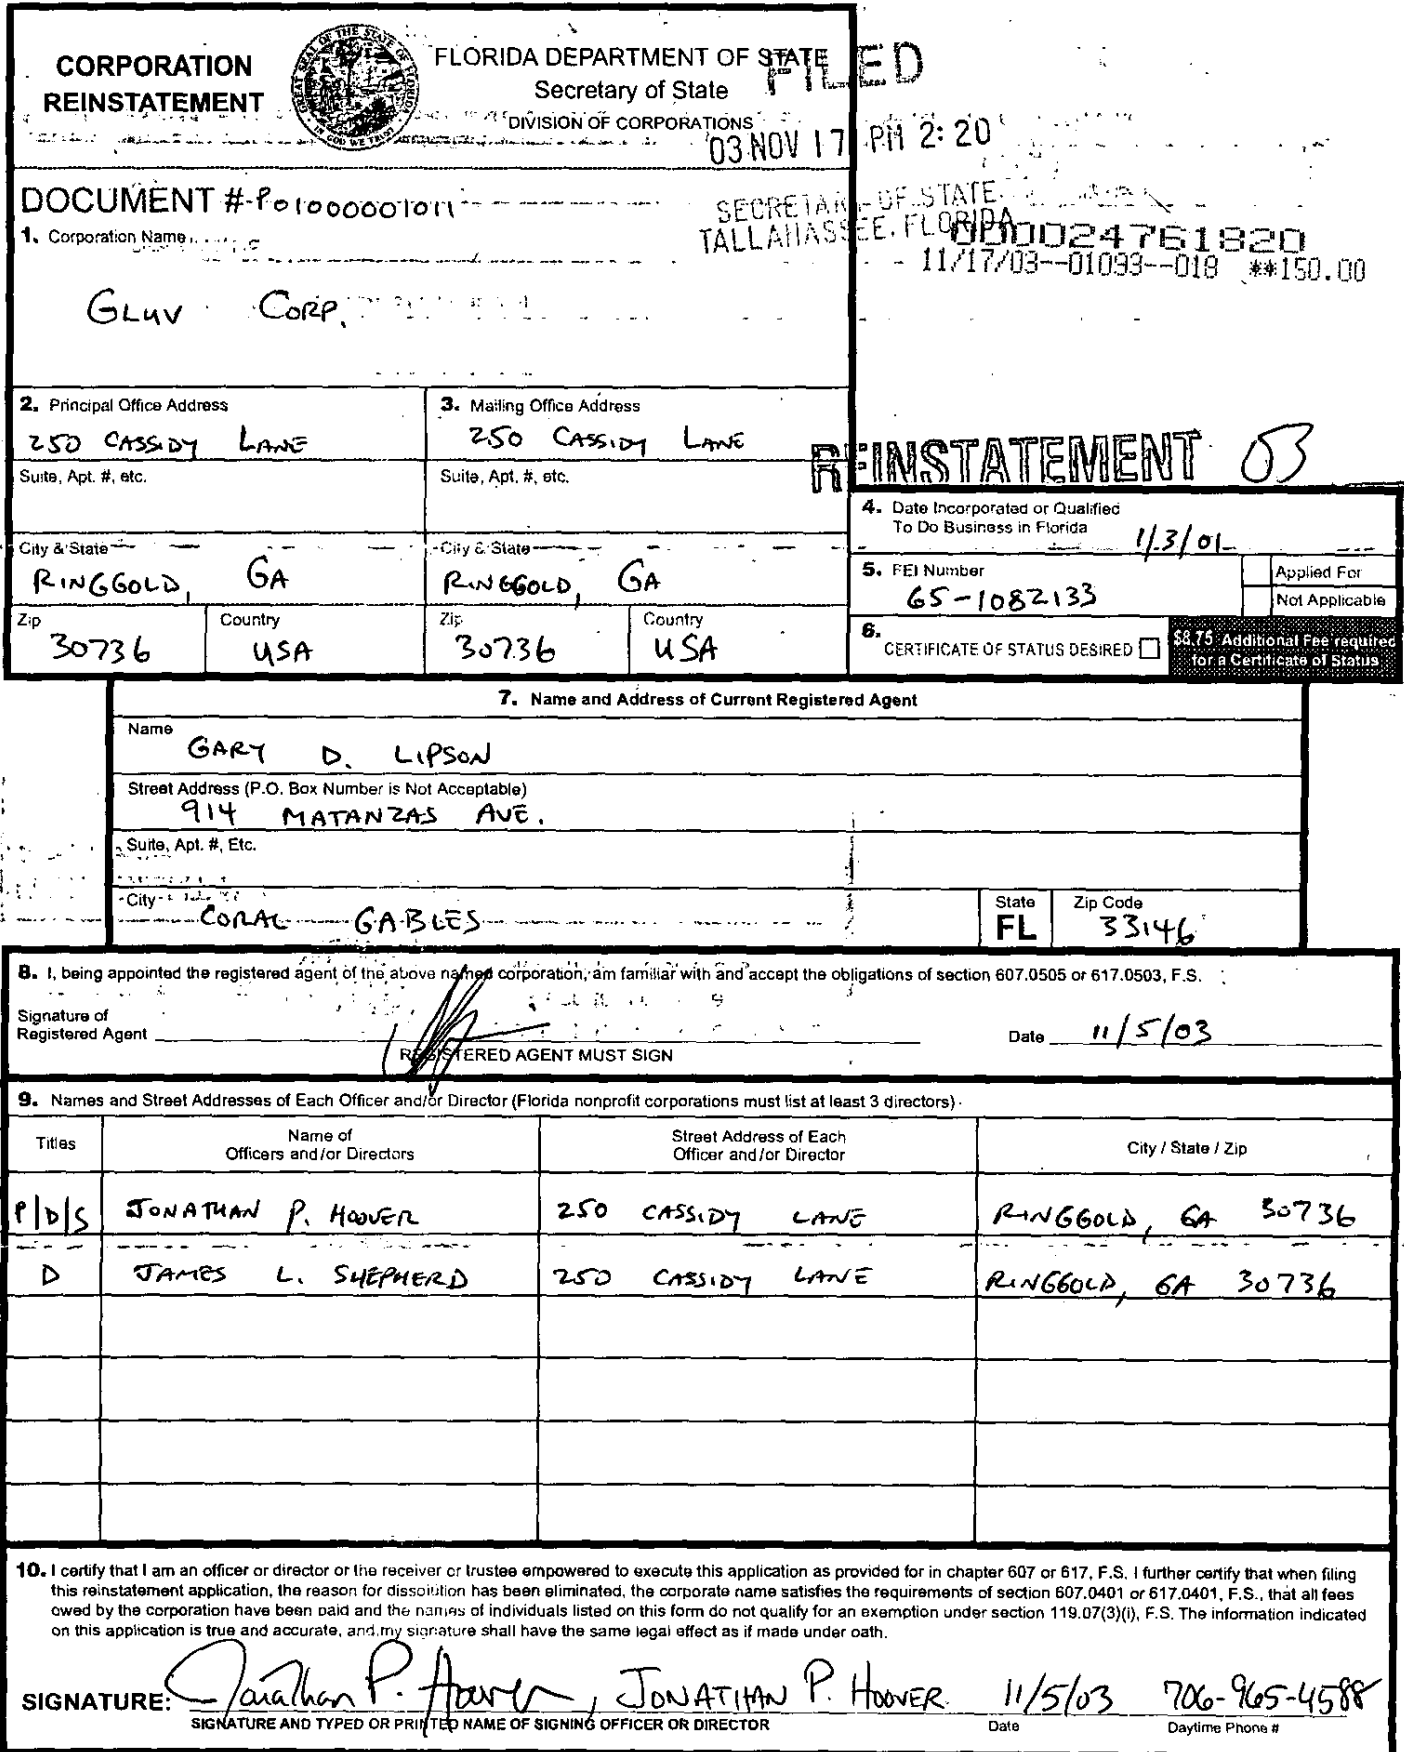 CORPORATION
REINSTATEMENT
GREAT SEAL OF THE STATE OF FLORIDA
IN GOD WE TRUST
FLORIDA DEPARTMENT OF STATE
Secretary of State
DIVISION OF CORPORATIONS
FILED
03 NOV 17 PM 2:20
SECRETARY OF STATE
TALLAHASSEE, FLORIDA
000024761820
11/17/03--01093--018 **150.00
DOCUMENT # P01000001011
1. Corporation Name
GLUV CORP.
2. Principal Office Address
250 CASSIDY LANE
Suite, Apt. #, etc.
City & State
RINGGOLD, GA
Zip
30736
Country
USA
3. Mailing Office Address
250 CASSIDY LANE
Suite, Apt. #, etc.
City & State
RINGGOLD, GA
Zip
30736
Country
USA
REINSTATEMENT 03
4. Date Incorporated or Qualified
To Do Business in Florida
1/3/01
5. FEI Number
65-1082133
Applied For
Not Applicable
6.
CERTIFICATE OF STATUS DESIRED
$8.75 Additional Fee required
for a Certificate of Status
7. Name and Address of Current Registered Agent
Name
GARY D. LIPSON
Street Address (P.O. Box Number is Not Acceptable)
914 MATANZAS AVE.
Suite, Apt. #, Etc.
City
CORAL GABLES
State
FL
Zip Code
33146
8. I, being appointed the registered agent of the above named corporation, am familiar with and accept the obligations of section 607.0505 or 617.0503, F.S.
Signature of
Registered Agent
REGISTERED AGENT MUST SIGN
Date 11/5/03
9. Names and Street Addresses of Each Officer and/or Director (Florida nonprofit corporations must list at least 3 directors)
Titles
Name of
Officers and/or Directors
Street Address of Each
Officer and/or Director
City / State / Zip
P/D/S JONATHAN P. HOOVER 250 CASSIDY LANE RINGGOLD, GA 30736
D JAMES L. SHEPHERD 250 CASSIDY LANE RINGGOLD, GA 30736
10. I certify that I am an officer or director or the receiver or trustee empowered to execute this application as provided for in chapter 607 or 617, F.S. I further certify that when filing
this reinstatement application, the reason for dissolution has been eliminated, the corporate name satisfies the requirements of section 607.0401 or 617.0401, F.S., that all fees
owed by the corporation have been paid and the names of individuals listed on this form do not qualify for an exemption under section 119.07(3)(i), F.S. The information indicated
on this application is true and accurate, and my signature shall have the same legal effect as if made under oath.
SIGNATURE: Jonathan P. Hoover, JONATHAN P. HOOVER 11/5/03 706-965-4588
SIGNATURE AND TYPED OR PRINTED NAME OF SIGNING OFFICER OR DIRECTOR
Date
Daytime Phone #